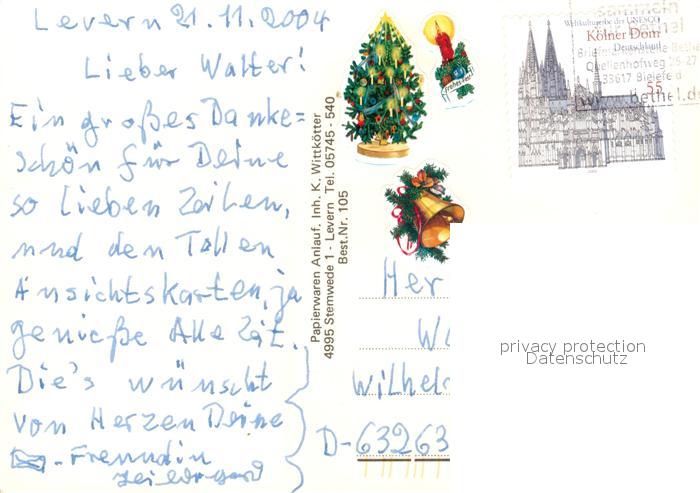 Levern 21.11.2004
Lieber Walter!
Ein großes Danke=
schön für Deine
so lieben Zeilen,
und den Tollen
Ansichtskarten, ja
genieße Alle Zeit.
Die's wünscht
von Herzen Deine
-Freundin
Papierwaren Anlauf, Inh. K. Wittkötter
4995 Stemwede 1 - Levern Tel. 05745 - 540
Best.Nr. 105
Frohes Fest
Weltkulturerbe der UNESCO
Kölner Dom
Deutschland
55
sammeln
Briefmarken
Quellenhofweg 25-27
33617 Bielefeld
bethel.de
Her
Wilhel
D-63263
privacy protection
Datenschutz